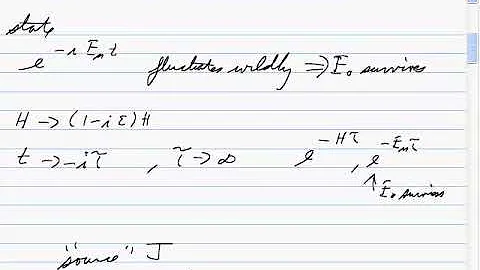 state
e^{-i E_n t} fluctuates wildly ⇒ E_0 survives
H → (1-iε)H
t → -iτ , τ → ∞ e^{-Hτ} , e^{-E_nτ}
↑ E_0 survives
"source" J